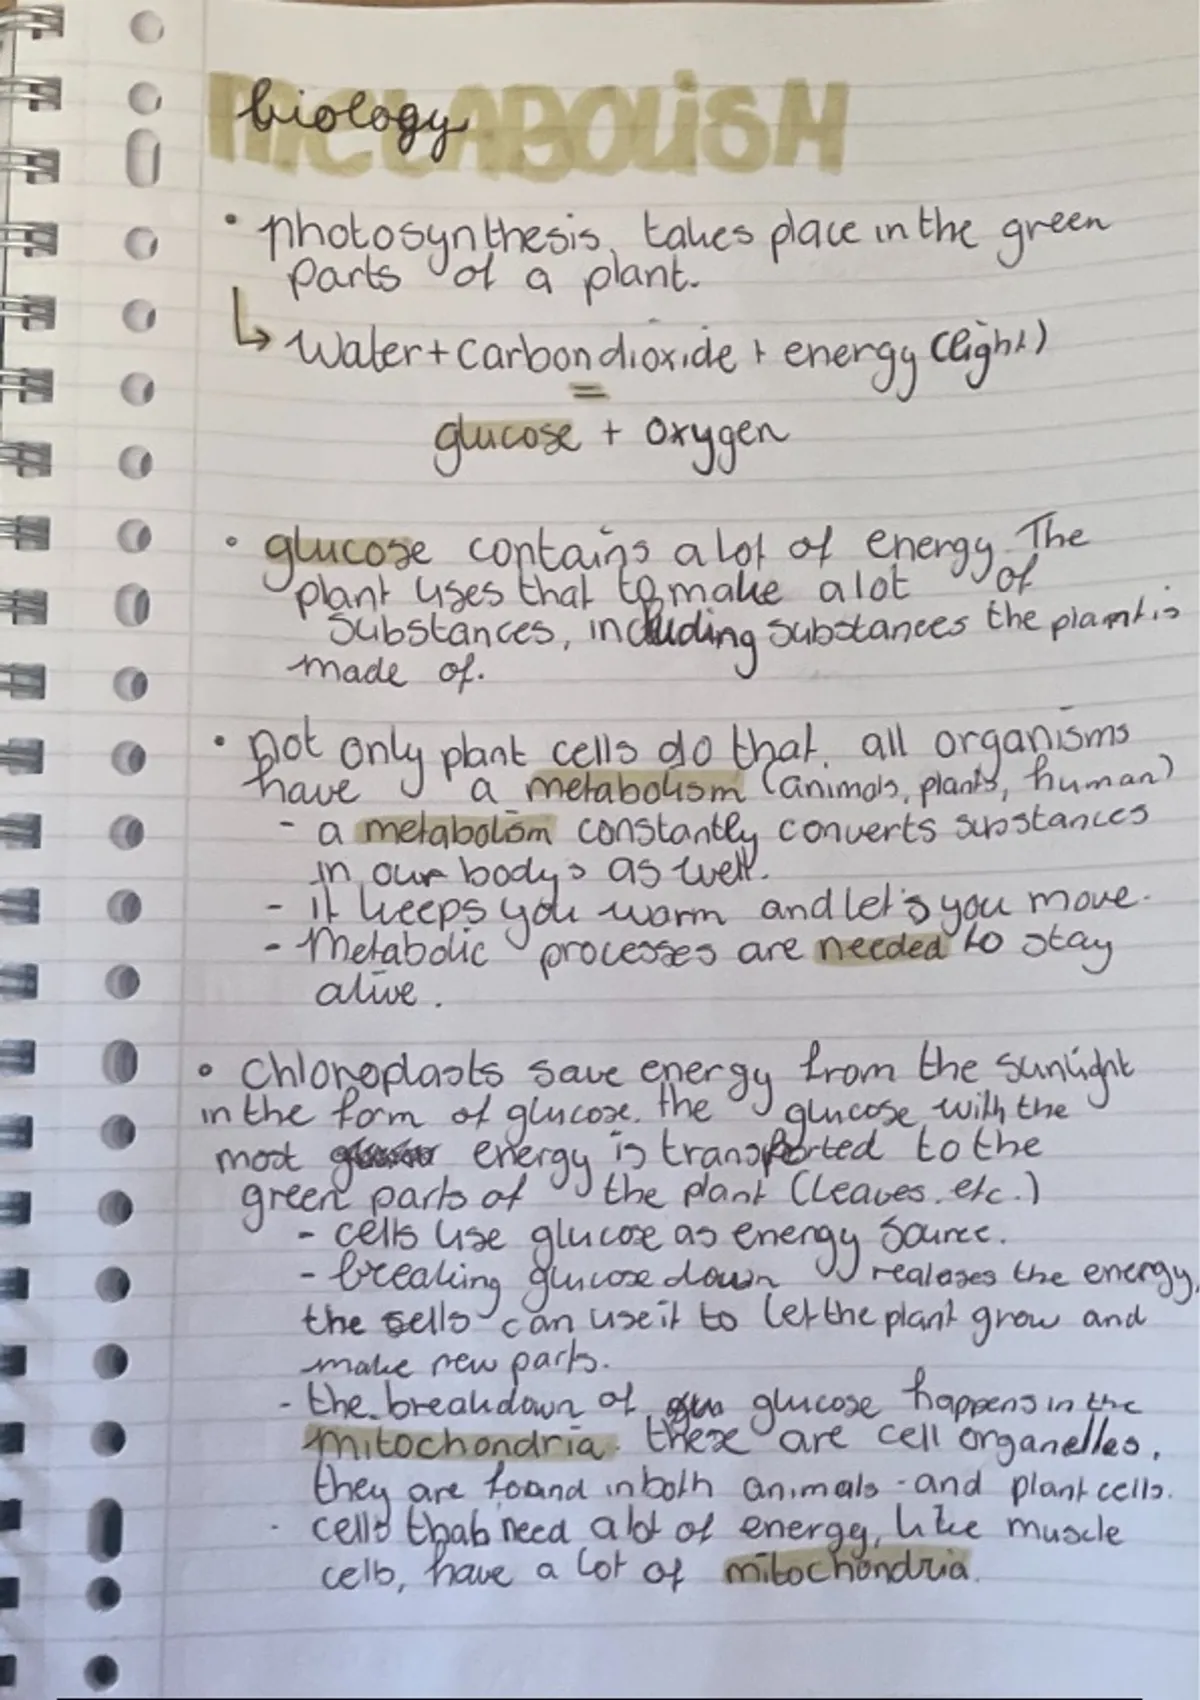 METABOLiSM
biology
• photosynthesis, takes place in the green
parts of a plant.
↳ Water + Carbondioxide + energy (light)
=
glucose + oxygen
• glucose contains a lot of energy. The
plant uses that to make a lot of
substances, including substances the plant is
made of.
• not only plant cells do that. all organisms
have a metabolism (animals, plants, human)
- a metabolism constantly converts substances
in our body's as well.
- it keeps you warm and let's you move.
- Metabolic processes are needed to stay
alive.
• Chloroplasts save energy from the sunlight
in the form of glucose. the glucose with the
most energy is transported to the
green parts of the plant (leaves. etc.)
- cells use glucose as energy source.
- breaking glucose down realases the energy,
the sells can use it to let the plant grow and
make new parts.
- the breakdown of glucose happens in the
mitochondria. these are cell organelles,
they are found in both animals - and plant cells.
- cells that need a lot of energy, like muscle
cells, have a lot of mitochondria.